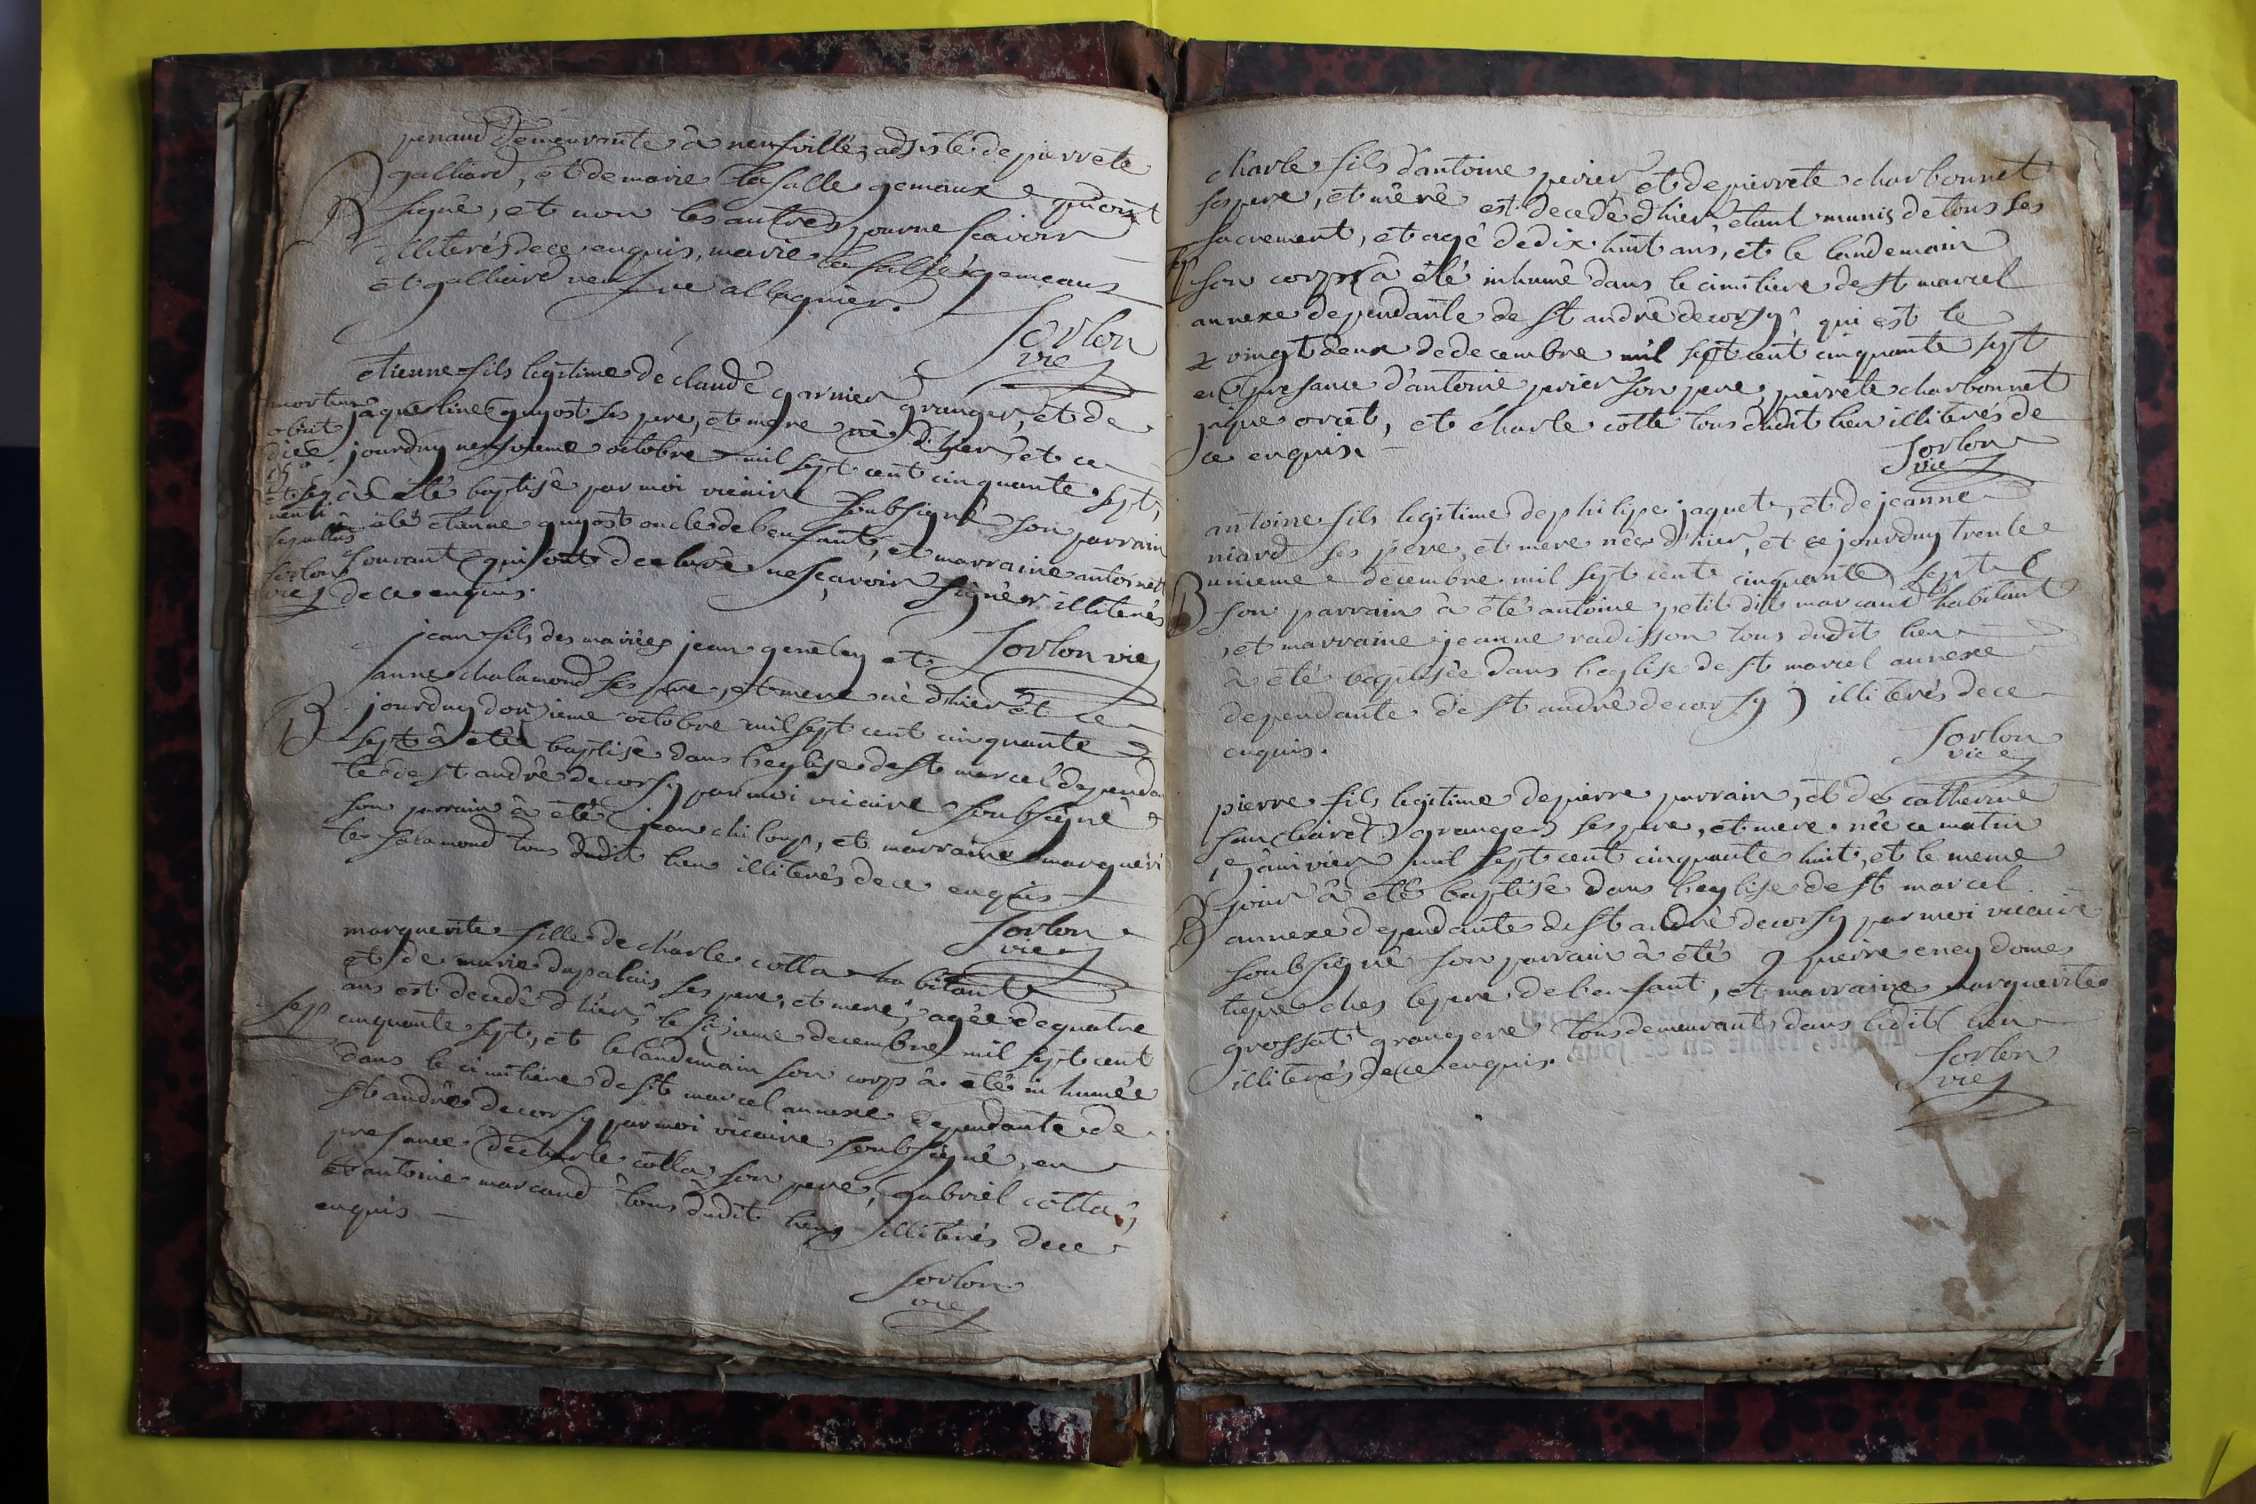 demeurante â neufville, adsisté de pierrete
galliard, et de marie la salle gemeaux
signé, et non les autres pour ne scavoir
illiterés de ce enquis, marie la salle gemeaux
et galliard veufve allagnier.
Sorlon
vic
etienne fils legitime de claude garnier granger, et de
jaqueline guyost ses pere, et mere né d'hier, et ce
jourduy neufvieme octobre mil sept cent cinquante sept,
â été baptisé par moi vicaire soubsigné son parrain
â été etienne guyost oncle de l'enfant, et marraine antoinete
jouvant qui ont declaré ne sçavoir signér illiterés
de ce enquis.
mortuus
obiit
die
et sepultus
Sorlon
vic
Sorlon vic
jean fils des mariés jean genetey et
janne chalamond ses pere, et mere né d'hier et ce
B
jourduy douzieme octobre mil sept cent cinquante
sept â été baptisé dans l'eglise de st marcel dependan
te de st andré de corsy par moi vicaire soubsigné
son parrain â été jean chiloup, et marraine margueri
te salamond tous dudit lieu illiterés de ce enquis
Sorlon
vic
marguerite fille de charle colla habitant
et de marie dupalais ses pere, et mere, agée de quatre
ans est decedé d'hier, le sizieme decembre mil sept cent
sep
cinquante sept, et le landemain son corp â été inhumée
dans le cimitiére de st marcel annexe dependante de
st andré de corsy par moi vicaire soubsigné, en
presance de charle colla son pere, gabriel colla,
et antoine marcand tous dudit lieu illiterés de ce
enquis
Sorlon
vic
charle fils d'antoine perier, et de pierrete charbonnet
ses pere, et mére est decedé d'hier, etant munis de tous ses
sacrement, et agé de dix huit ans, et le landemain
sep
son corp â été inhumé dans le cimitiere de st marcel
annexe dependante de st andré de corsy, qui est le
vingt deux de decembre mil sept cent cinquante sept
en presance d'antoine perier son pere, pierrete charbonnet
et charle colle tous dudit lieu illiterés de
ce enquis.
Sorlon
vic
antoine fils legitime de philipe jaquet, et de jeanne
niard ses pere, et mere née d'hier, et ce jourduy trente
unieme decembre mil sept cent cinquante sept
B
son parrain â été antoine petit dit marcand habitant
et marraine jeanne radisson tous dudit lieu
â été baptisée dans l'eglise de st marcel annexe
dependante de st andré de corsy illiterés de ce
enquis.
Sorlon
vic
pierre fils legitime de pierre parrain, et de catherine
granger ses pere, et mere née ce matin
janvier mil sept cent cinquante huit, et le meme
jour â été baptisé dans l'eglise de st marcel
B
annexe dependante de st andre de corsy par moi vicaire
soubsigné son parrain â été pierre eney domes
tique ches le pere de l'enfant, et marraine marguerite
grossat grangere tous demeurants dans ledit lieu
illiterés de ce enquis.
Sorlon
vic